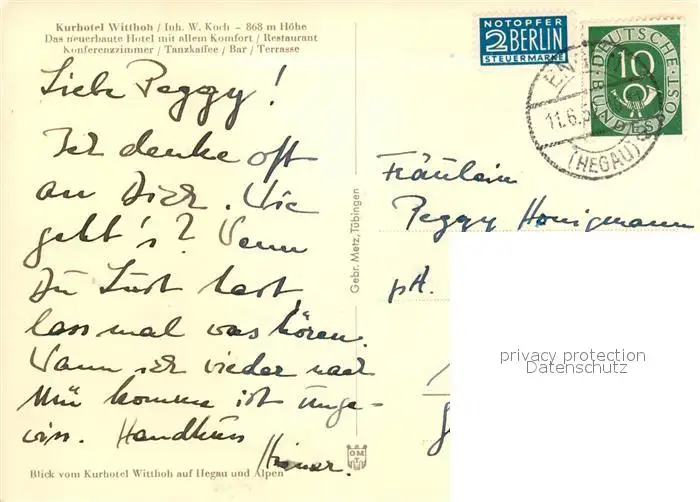 Kurhotel Witthoh / Inh. W. Koch – 868 m Höhe
Das neuerbaute Hotel mit allem Komfort / Restaurant
Konferenzzimmer / Tanzkaffee / Bar / Terrasse
Liebe Peggy!
Ich denke oft
an Dich. Wie
geht's? Wenn
Du Lust hast
lass mal was hören.
Wann ich wieder nach
Mü komme ist unge-
wiss. Handkuss
Blick vom Kurhotel Witthoh auf Hegau und Alpen
Gebr. Metz, Tübingen
NOTOPFER
2 BERLIN
STEUERMARKE
DEUTSCHE BUNDESPOST
10
11.6.5
(HEGAU)
Fräulein
Peggy Honigmann
pA.
privacy protection
Datenschutz